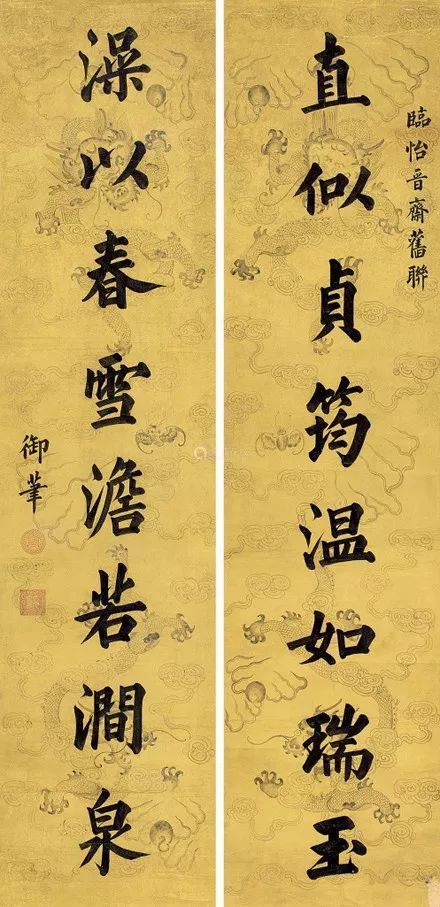 臨怡晋齋舊聯
直似貞筠温如瑞玉
澡以春雪澹若澗泉
御筆